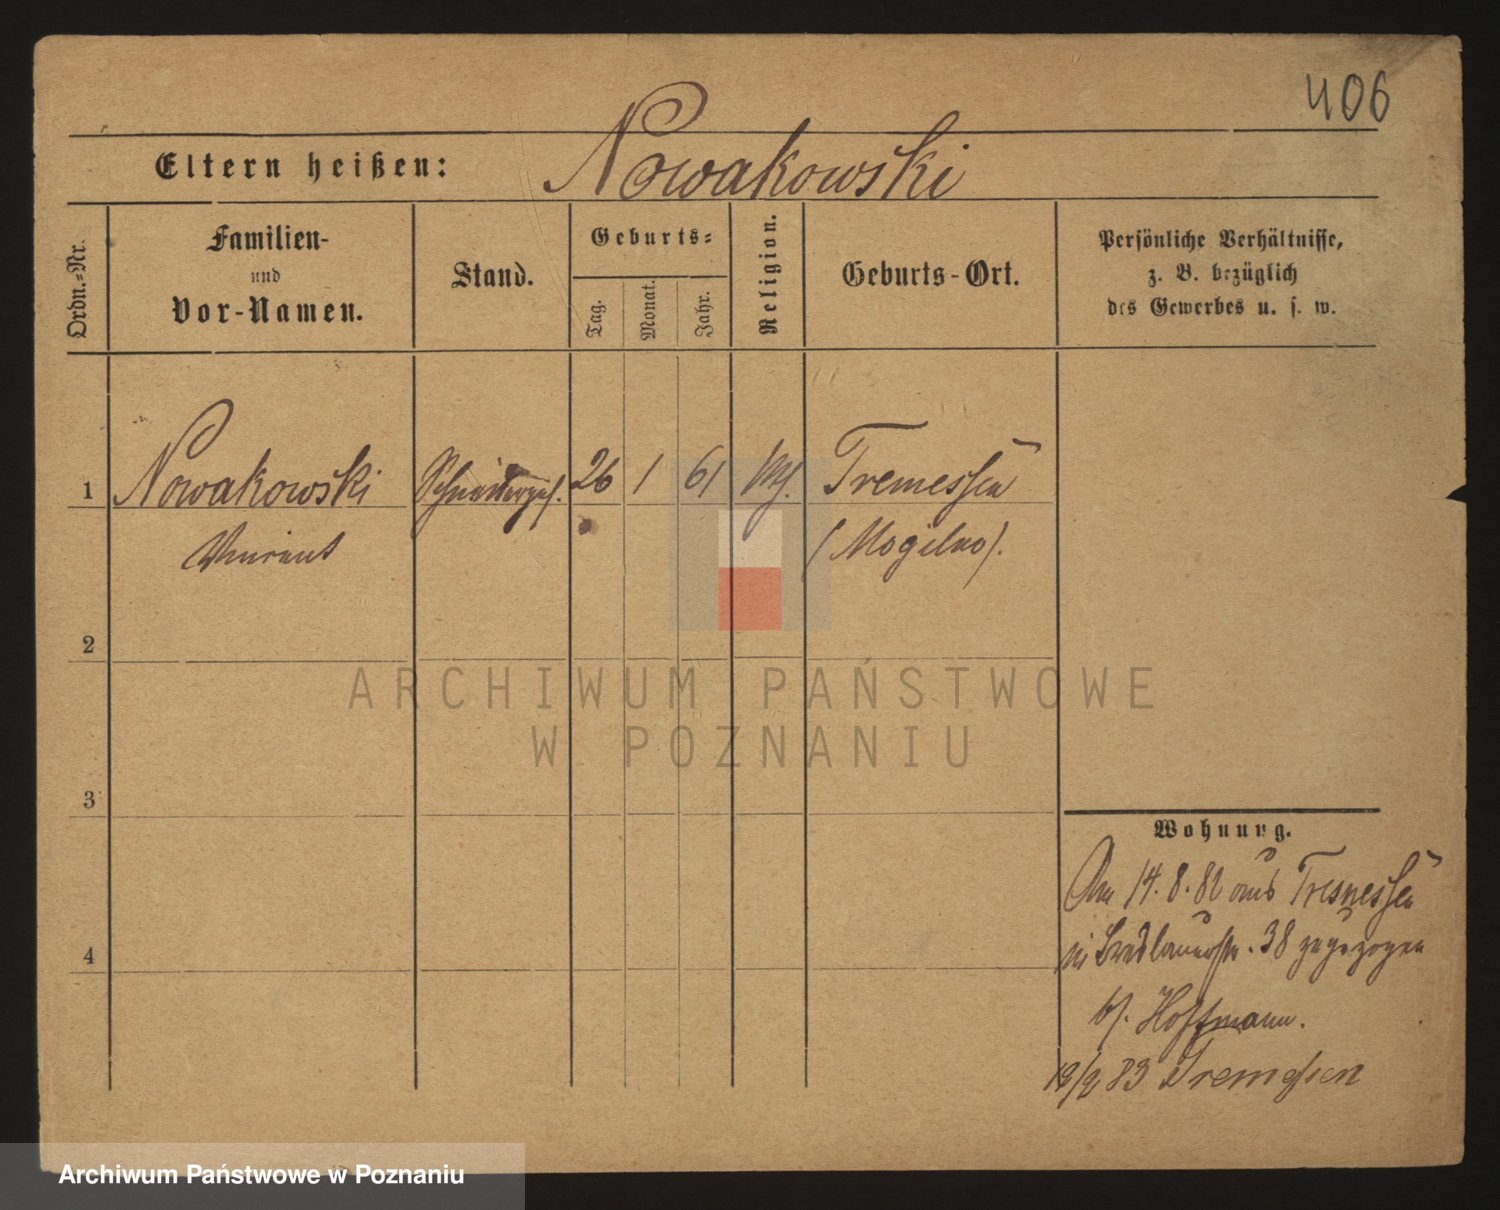 406
Eltern heißen: Nowakowski
Ordn.-Nr.
Familien-
und
Vor-Namen.
Stand.
Geburts-
Tag.
Monat.
Jahr.
Religion.
Geburts-Ort.
Persönliche Verhältnisse,
z. B. bezüglich
des Gewerbes u. s. w.
1 Nowakowski Schneiderges. 26 1 61 Tremessen
Vincent (Mogilno).
2
3
4
Wohnung.
Am 14. 8. 82 aus Tremessen
in Breslauerstr. 38 zugezogen
b/. Hoffmann.
83 Tremessen
ARCHIWUM PAŃSTWOWE
W POZNANIU
Archiwum Państwowe w Poznaniu